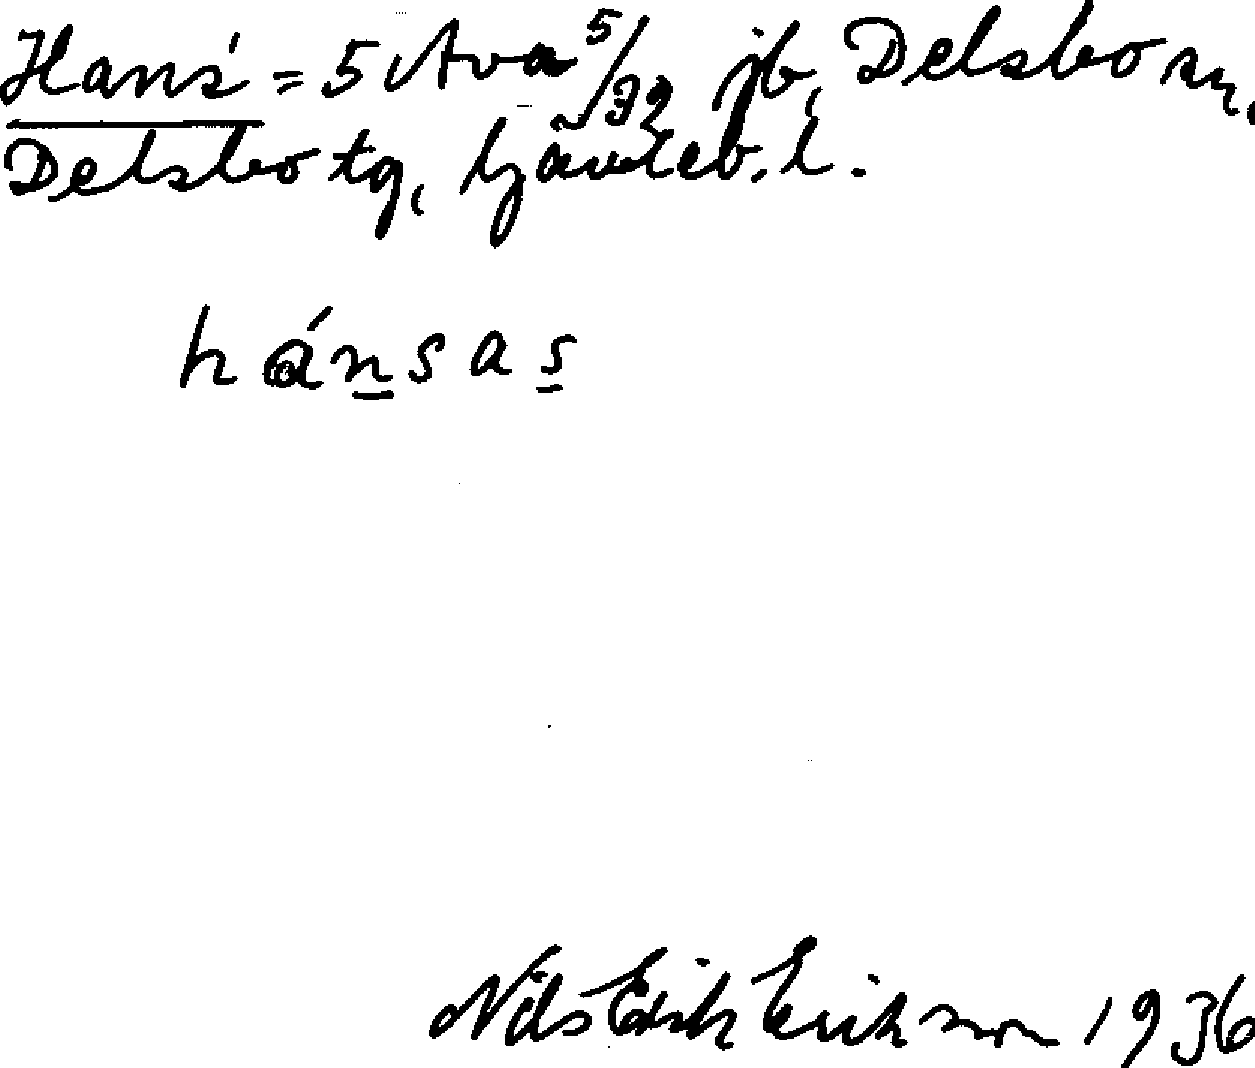 Hans' = 5 Ava 5/32 jb, Delsbo sn,
Delsbo tg, Gävleb. l.
hánsas
Nils Erik Erikson 1936